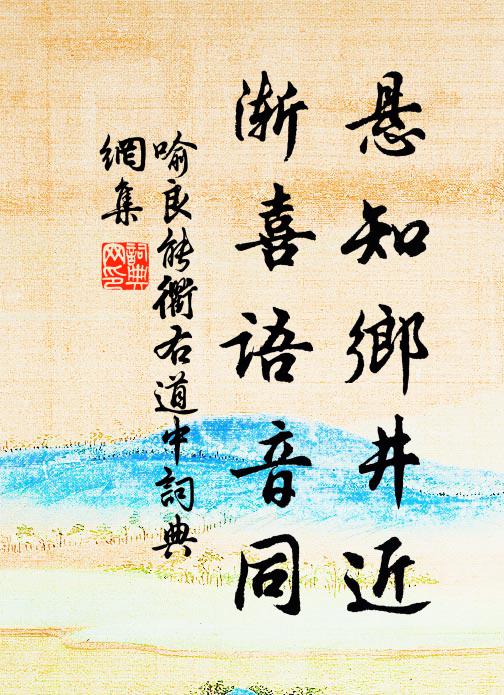 悬知鄉井近
渐喜语音同
喻良能衢右道中詞典
網集
詞典网印